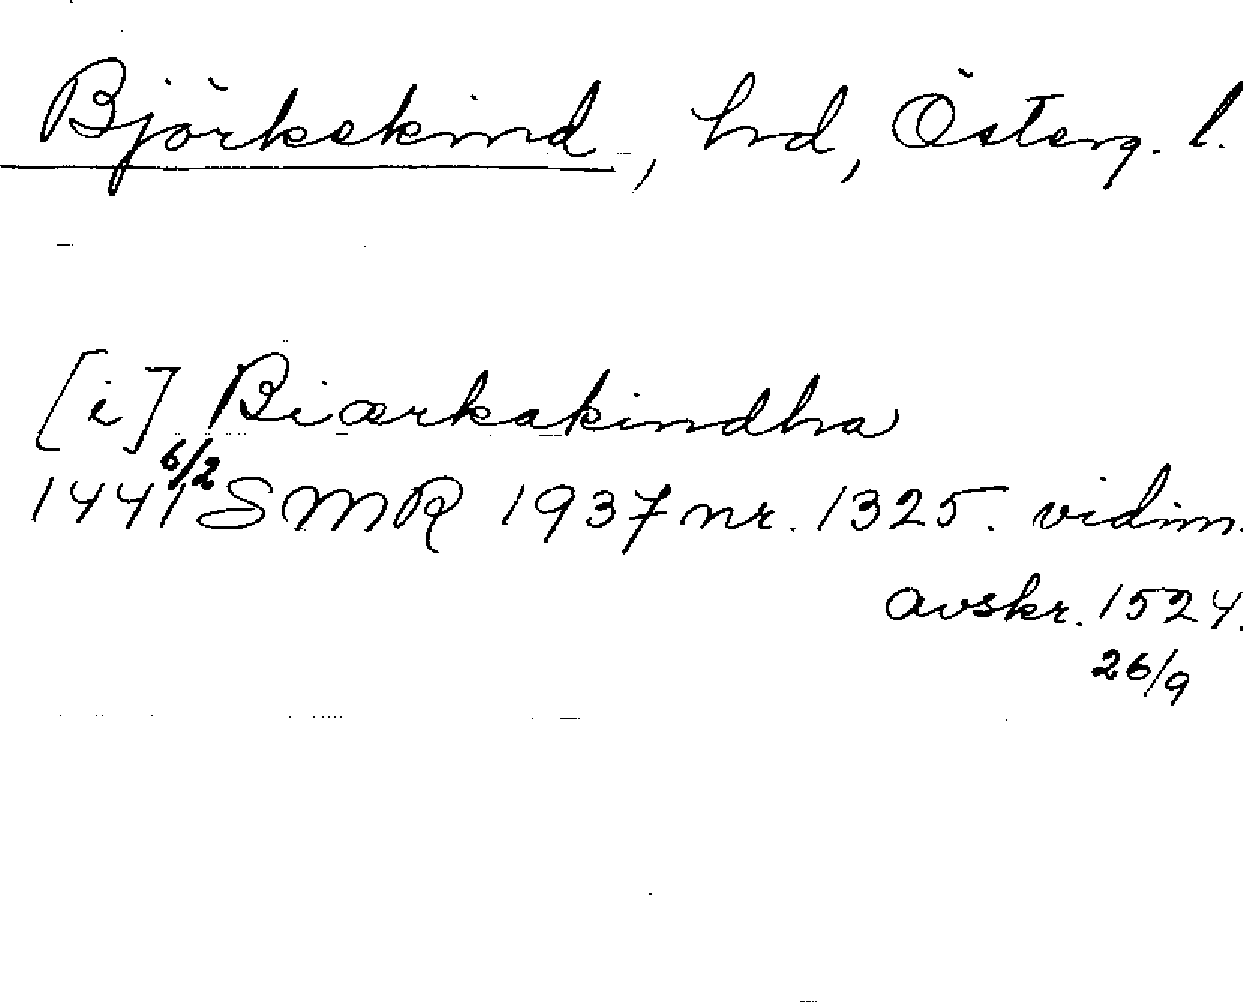 Björkekind, hd, Österg. l.
[i] Biærkakindha
1441 6/2 SMR 1937 nr. 1325. vidim.
avskr. 1524.
26/9